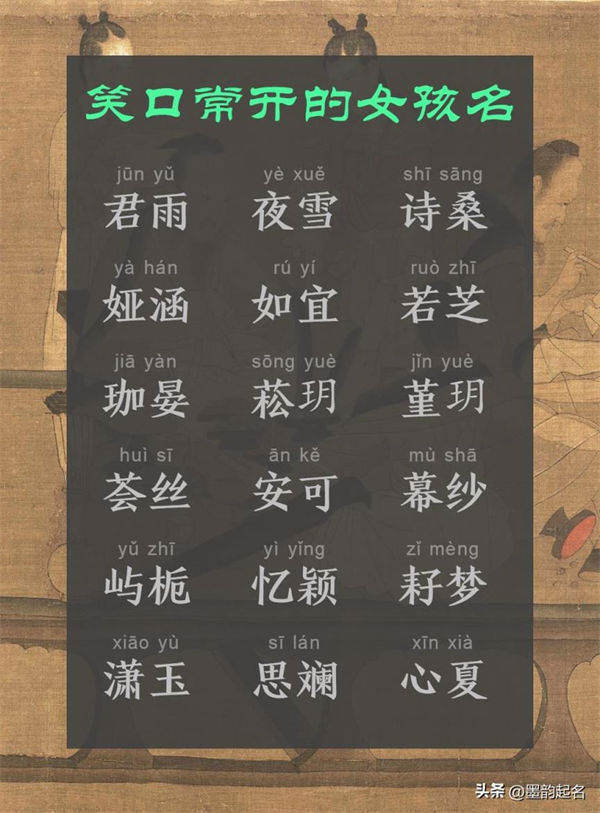 笑口常开的女孩名
jūn yǔ yè xuě shī sāng
君雨 夜雪 诗桑
yà hán rú yí ruò zhī
娅涵 如宜 若芝
jiā yàn sōng yuè jǐn yuè
珈晏 菘玥 堇玥
huì sī ān kě mù shā
荟丝 安可 幕纱
yǔ zhī yì yǐng zǐ mèng
屿栀 忆颖 耔梦
xiāo yù sī lán xīn xià
潇玉 思斓 心夏
头条 @墨韵起名